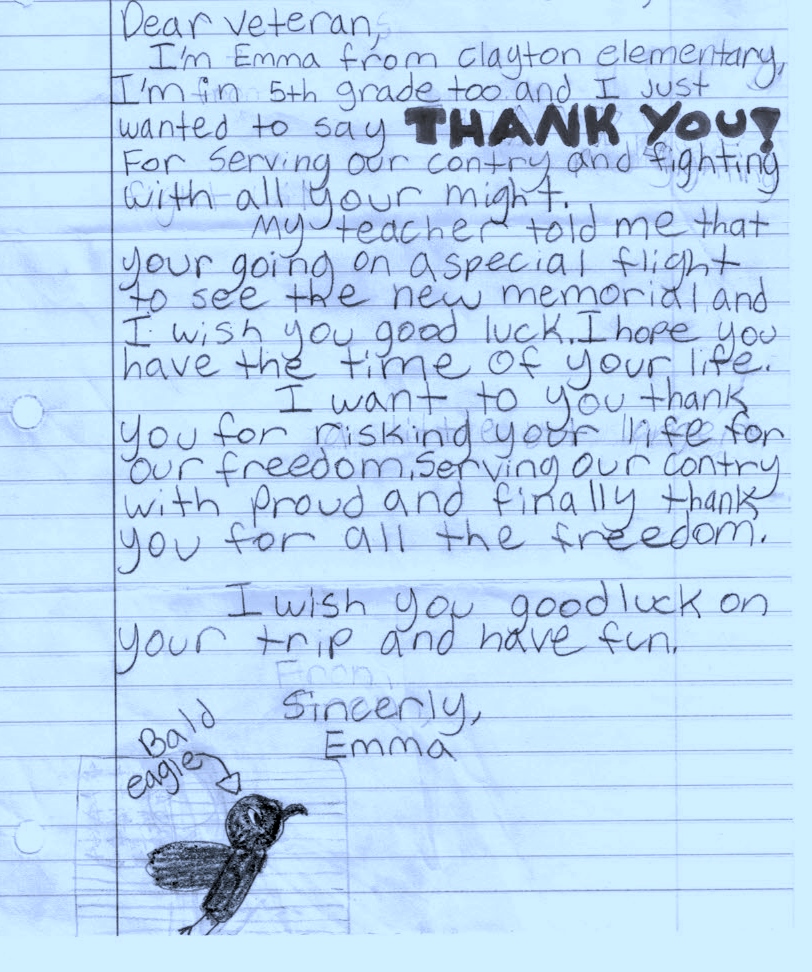 Dear Veteran,
I'm Emma from clayton elementary,
I'm in 5th grade too and I just
wanted to say THANK YOU!
For Serving our contry and fighting
with all your might.
My teacher told me that
your going on a special flight
to see the new memorial and
I wish you good luck. I hope you
have the time of your life.
I want to you thank
you for risking your life for
our freedom. Serving our contry
with proud and finally thank
you for all the freedom.
I wish you good luck on
your trip and have fun.
From,
Sincerly,
Emma
Bald
eagle